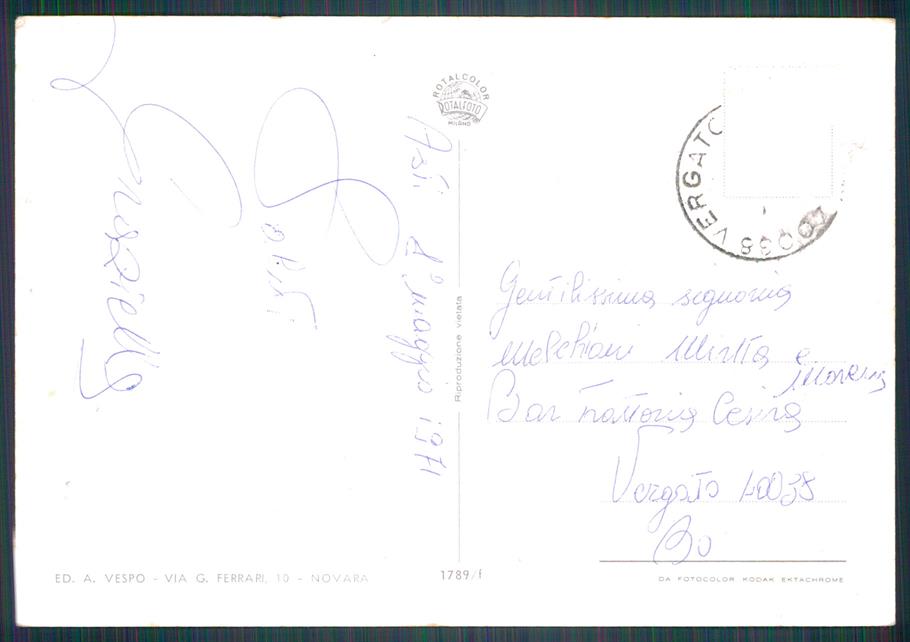 ROTALCOLOR
ROTALFOTO
MILANO
Asti 1° maggio 1971
Saluti
Riproduzione vietata
40038 VERGATO
Gentilissima signorina
Melchioni Mirta e
Morena
Bar Trattoria Cesira
Vergato 40038
Bo
ED. A. VESPO - VIA G. FERRARI, 10 - NOVARA
1789/f
DA FOTOCOLOR KODAK EKTACHROME